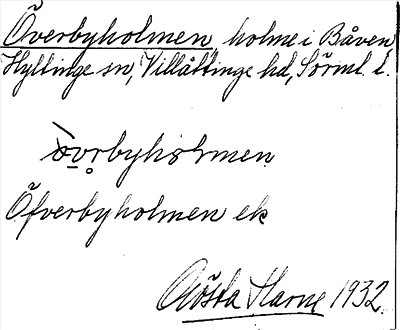 Överbyholmen, holme i Båven
Hyltinge sn, Villåttinge hd, Sörml. l.
Öfverbyholmen ek
Gösta Harne 1932.